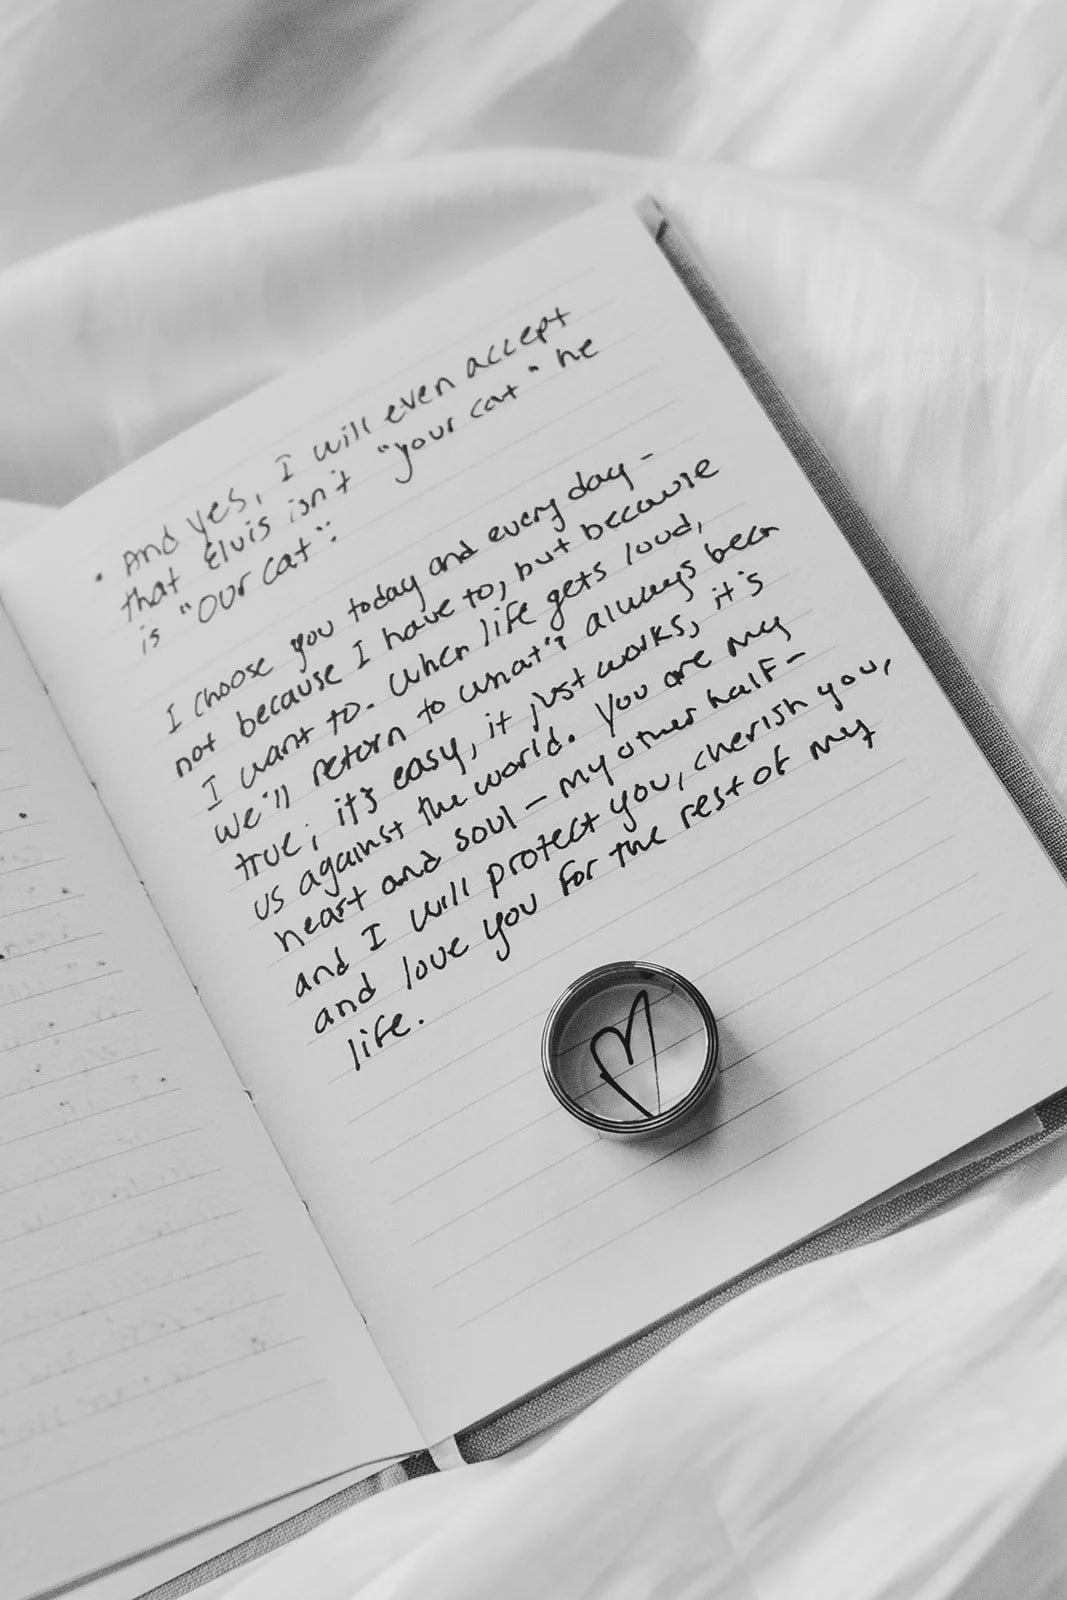 • And yes, I will even accept
that Elvis isn't "your cat" he
is "our cat".
I choose you today and every day -
not because I have to, but because
I want to. When life gets loud,
we'll return to what's always been
true; it's easy, it just works, it's
us against the world. You are my
heart and soul - my other half -
and I will protect you, cherish you,
and love you for the rest of my
life.